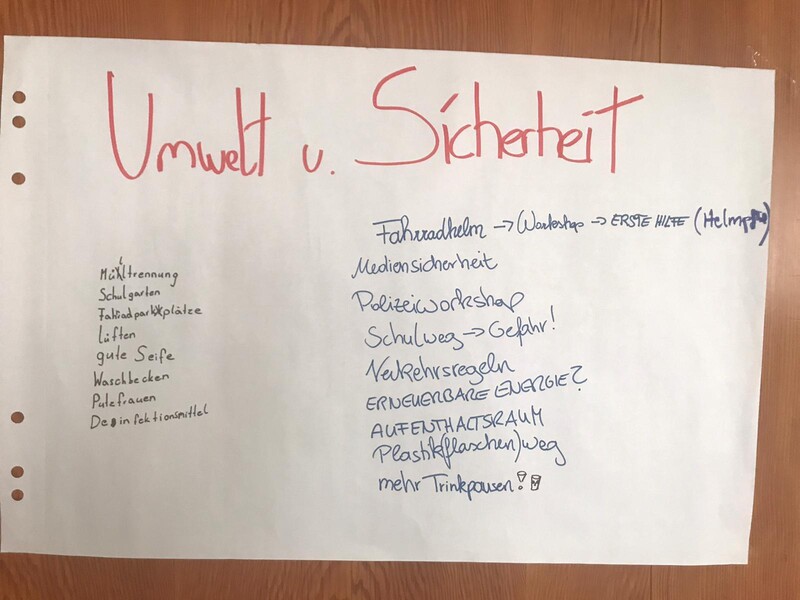 Umwelt u. Sicherheit
Mülltrennung
Schulgarten
Fahradparkplätze
lüften
gute Seife
Waschbecken
Putzfrauen
Desinfektionsmittel
Fahrradhelm → Workshop → ERSTE HILFE
Mediensicherheit
Polizeiworkshop
Schulweg → Gefahr!
Verkehrsregeln
ERNEUERBARE ENERGIE?
AUFENTHALTSRAUM
Plastik(flaschen)weg
mehr Trinkpausen!